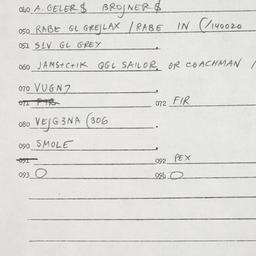 040 A. GELER $ BROJNER $
050 RABE GL GREJLAX / RABE IN (/140020
051 S1V GL GREY
060 JAMS+C+IK QGL SAILOR OR COACHMAN /
070 VUGN7
071 FIR 072 FIR
080 VEJG3NA (30G
090 SMOLE
091 092 PEX
093 O 096 O